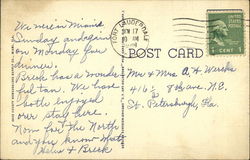 We were in Miami
Sunday and again
on Monday for
dinner.
Breck has a wonder-
ful tan. We have
both enjoyed
our stay here.
Now for the North
and you know what
Helen & Breck
FORT LAUDERDALE
JUN 17
10 AM
POST CARD
1 CENT 1
Mr & Mrs A. H.
416 5 7th ave. N.E.
St. Petersburg, Fla.